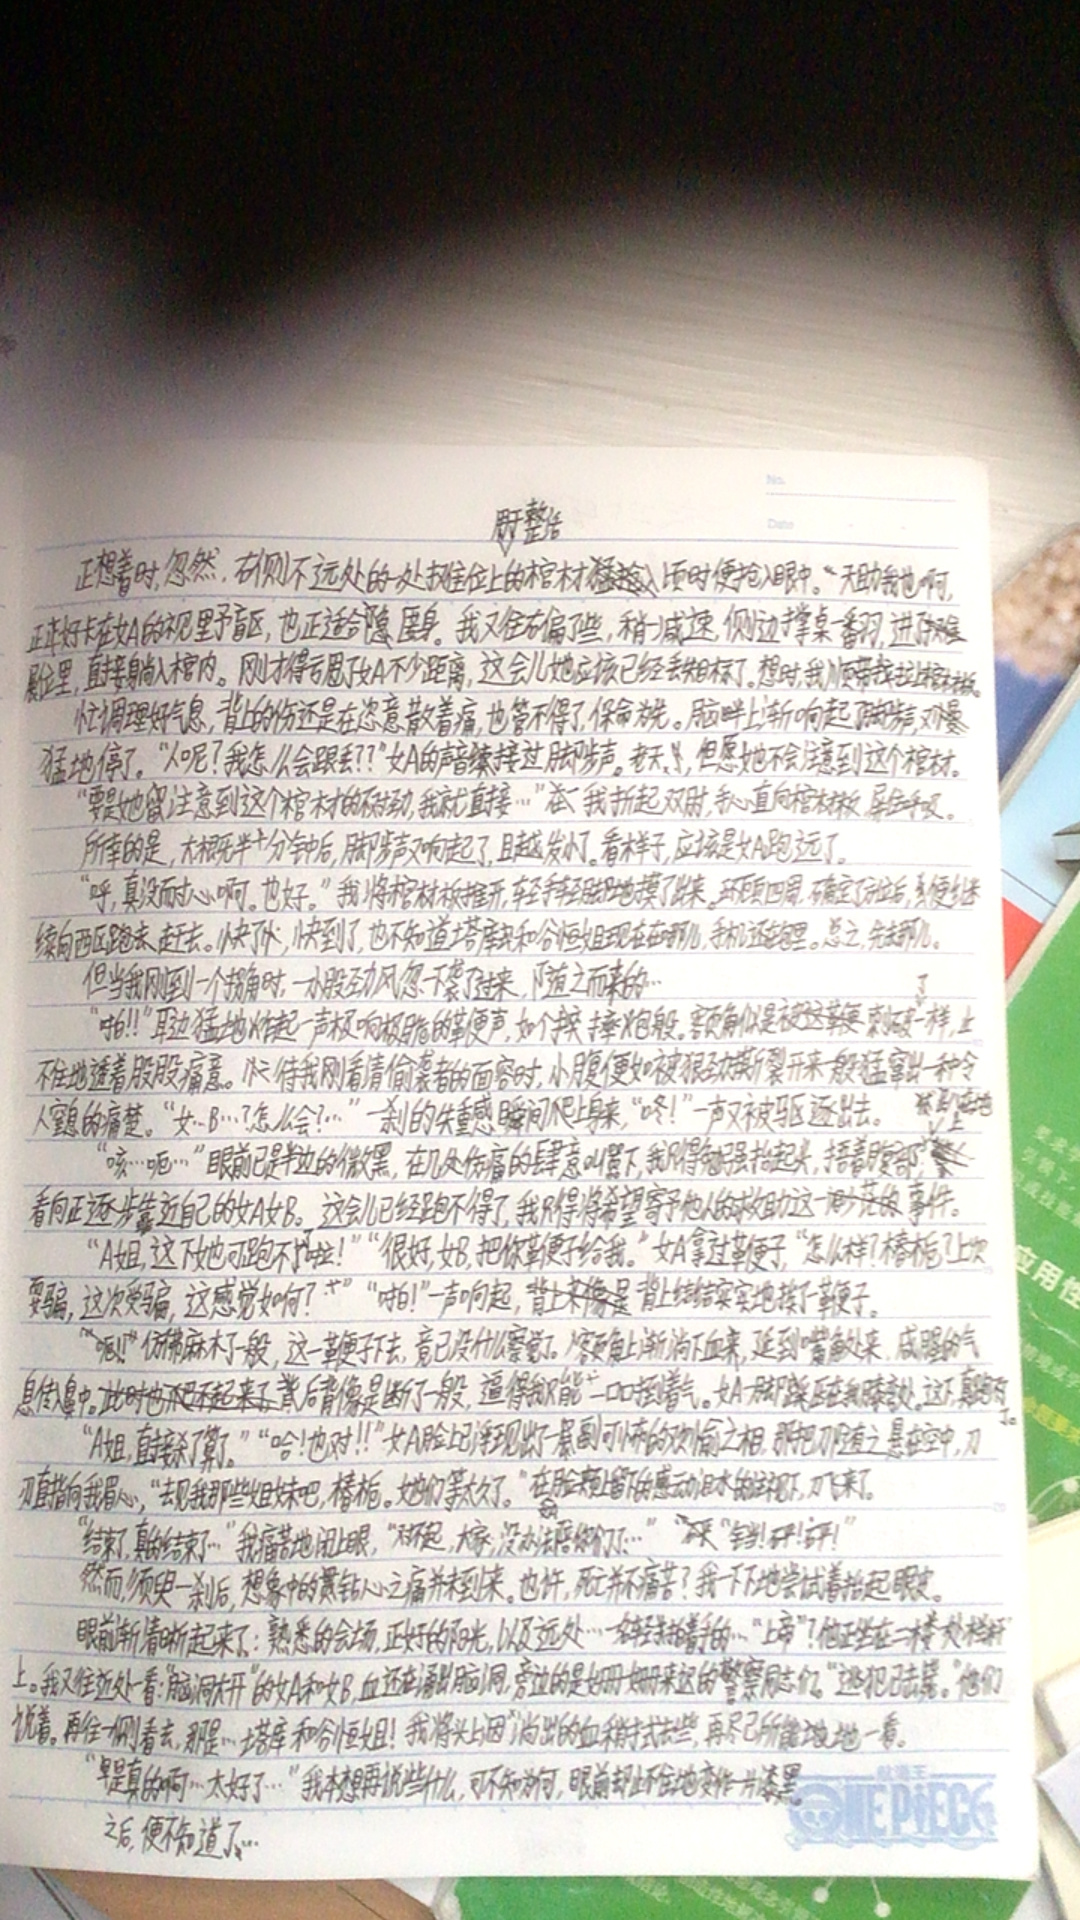 No.
Date
整活
正想着时,忽然,右侧不远处的一处摊位上的棺材顷时便抢入眼中。“天助我也啊,
正好卡在女A的视野盲区,也正适合隐匿身。我又往右偏了些,稍一减速,侧边撑桌一翻,进了
展位里,直接躺入棺内。刚才得甩了女A不少距离,这会儿她应该已经丢失目标了。想时,我顺带拉上棺材板。
忙调理好气息,背上的伤还是在恣意散着痛,也管不得了,保命为先。脑畔上渐响起了脚步声,又
猛地停了。“人呢?我怎么会跟丢??”女A的声音接过脚步声。老天爷,但愿她不会注意到这个棺材。
“要是她留注意到这个棺材的不对劲,我就直接…”我折起双肘,手心直向棺材板,屏住呼吸。
所幸的是,大概死半分钟后,脚步声又响起了,且越发小了。看样子,应该是女A跑远了。
“呼,真没耐心啊。也好。”我将棺材板推开,轻手轻脚地摸了出来。环顾四周,确定了方位后,便继
续向西区赶去。快了快了,快到了,也不知道塔库和谷恒姐现在在哪儿,手机还在包里。总之,先去那儿。
但当我刚到一个拐角时,一小股劲风忽袭了过来,随之而来的…
“啪!!”耳边猛地炸起一声极响极脆的鞭声,如个炮般。额角似是被这鞭刺破了一样,止
不住地透着股股痛意。待我刚看清偷袭者的面容时,小腹便如被狠劲撕裂开来一般猛窜出一种令
人窒息的痛楚。“女…B…?怎么会?…”一刹的失重感瞬间爬上身来,“咚!”一声又被驱逐出去。
“咳…呃…”眼前已是半边的微黑,在几处伤痛的肆意叫嚣下,我只得勉强抬起头,捂着腹部
看向正逐步靠近自己的女A女B。这会儿已经跑不得了,我只得将希望寄予他人的求助这一事件。
“A姐,这下她可跑不掉啦!”“很好,女B,把你鞭子给我。”女A拿过鞭子,“怎么样?椿栀?上次
耍骗,这次受骗,这感觉如何?”“啪!”一声响起,背上结结实实地挨了鞭子。
“呃!!”仿佛麻木了一般,这一鞭子下去,竟已没什么察觉了。额角上渐淌下血来,延到嘴角处来,咸腥的气
息传入鼻中。背后背像是断了一般,逼得我只能一口口捯着气。女A一脚踩压在我膝盖处。这下真跑不了
“A姐,直接杀了算了。”“哈!也对!!”女A脸上已浮现出了一副可怖的欢愉之相,那把刀随之悬在空中,刀
刃直指向我眉心,“去见我那些姐妹吧,椿栀。她们等太久了。”在脸颊上留下的感动泪水的注视下,刀飞来了。
“结束了,真的结束了…”我痛苦地闭上眼,“对不起,大家,没办法陪你们了…”“铛!砰!砰!”
然而,须臾一刹后,想象中的贯钻心之痛并未到来。也许,死亡并不痛苦?我一下下地尝试着抬起眼皮。
眼前渐清晰起来了:熟悉的会场,正好的阳光,以及远处…一名轻拍着手的…“上帝”?他正坐在二楼一处栏杆
上。我又往近处一看:“脑洞大开”的女A和女B,血还在涌出脑洞,旁边的是姗姗来迟的警察同志们。“逃犯已击毙。”他们
说着。再往一侧看去,那是…塔库和谷恒姐!我将头上因淌出的血稍拭去些,再尽己所能地一看。
“是真的啊…太好了…”我本想再说些什么,可不知为何,眼前却止不住地变作一片漆黑。
之后,便不知道了…
航海王
ONE PIECE
应用性